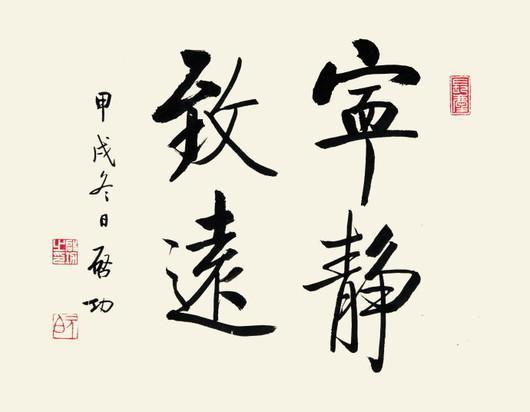 寧静
致遠
甲戌冬日 启功